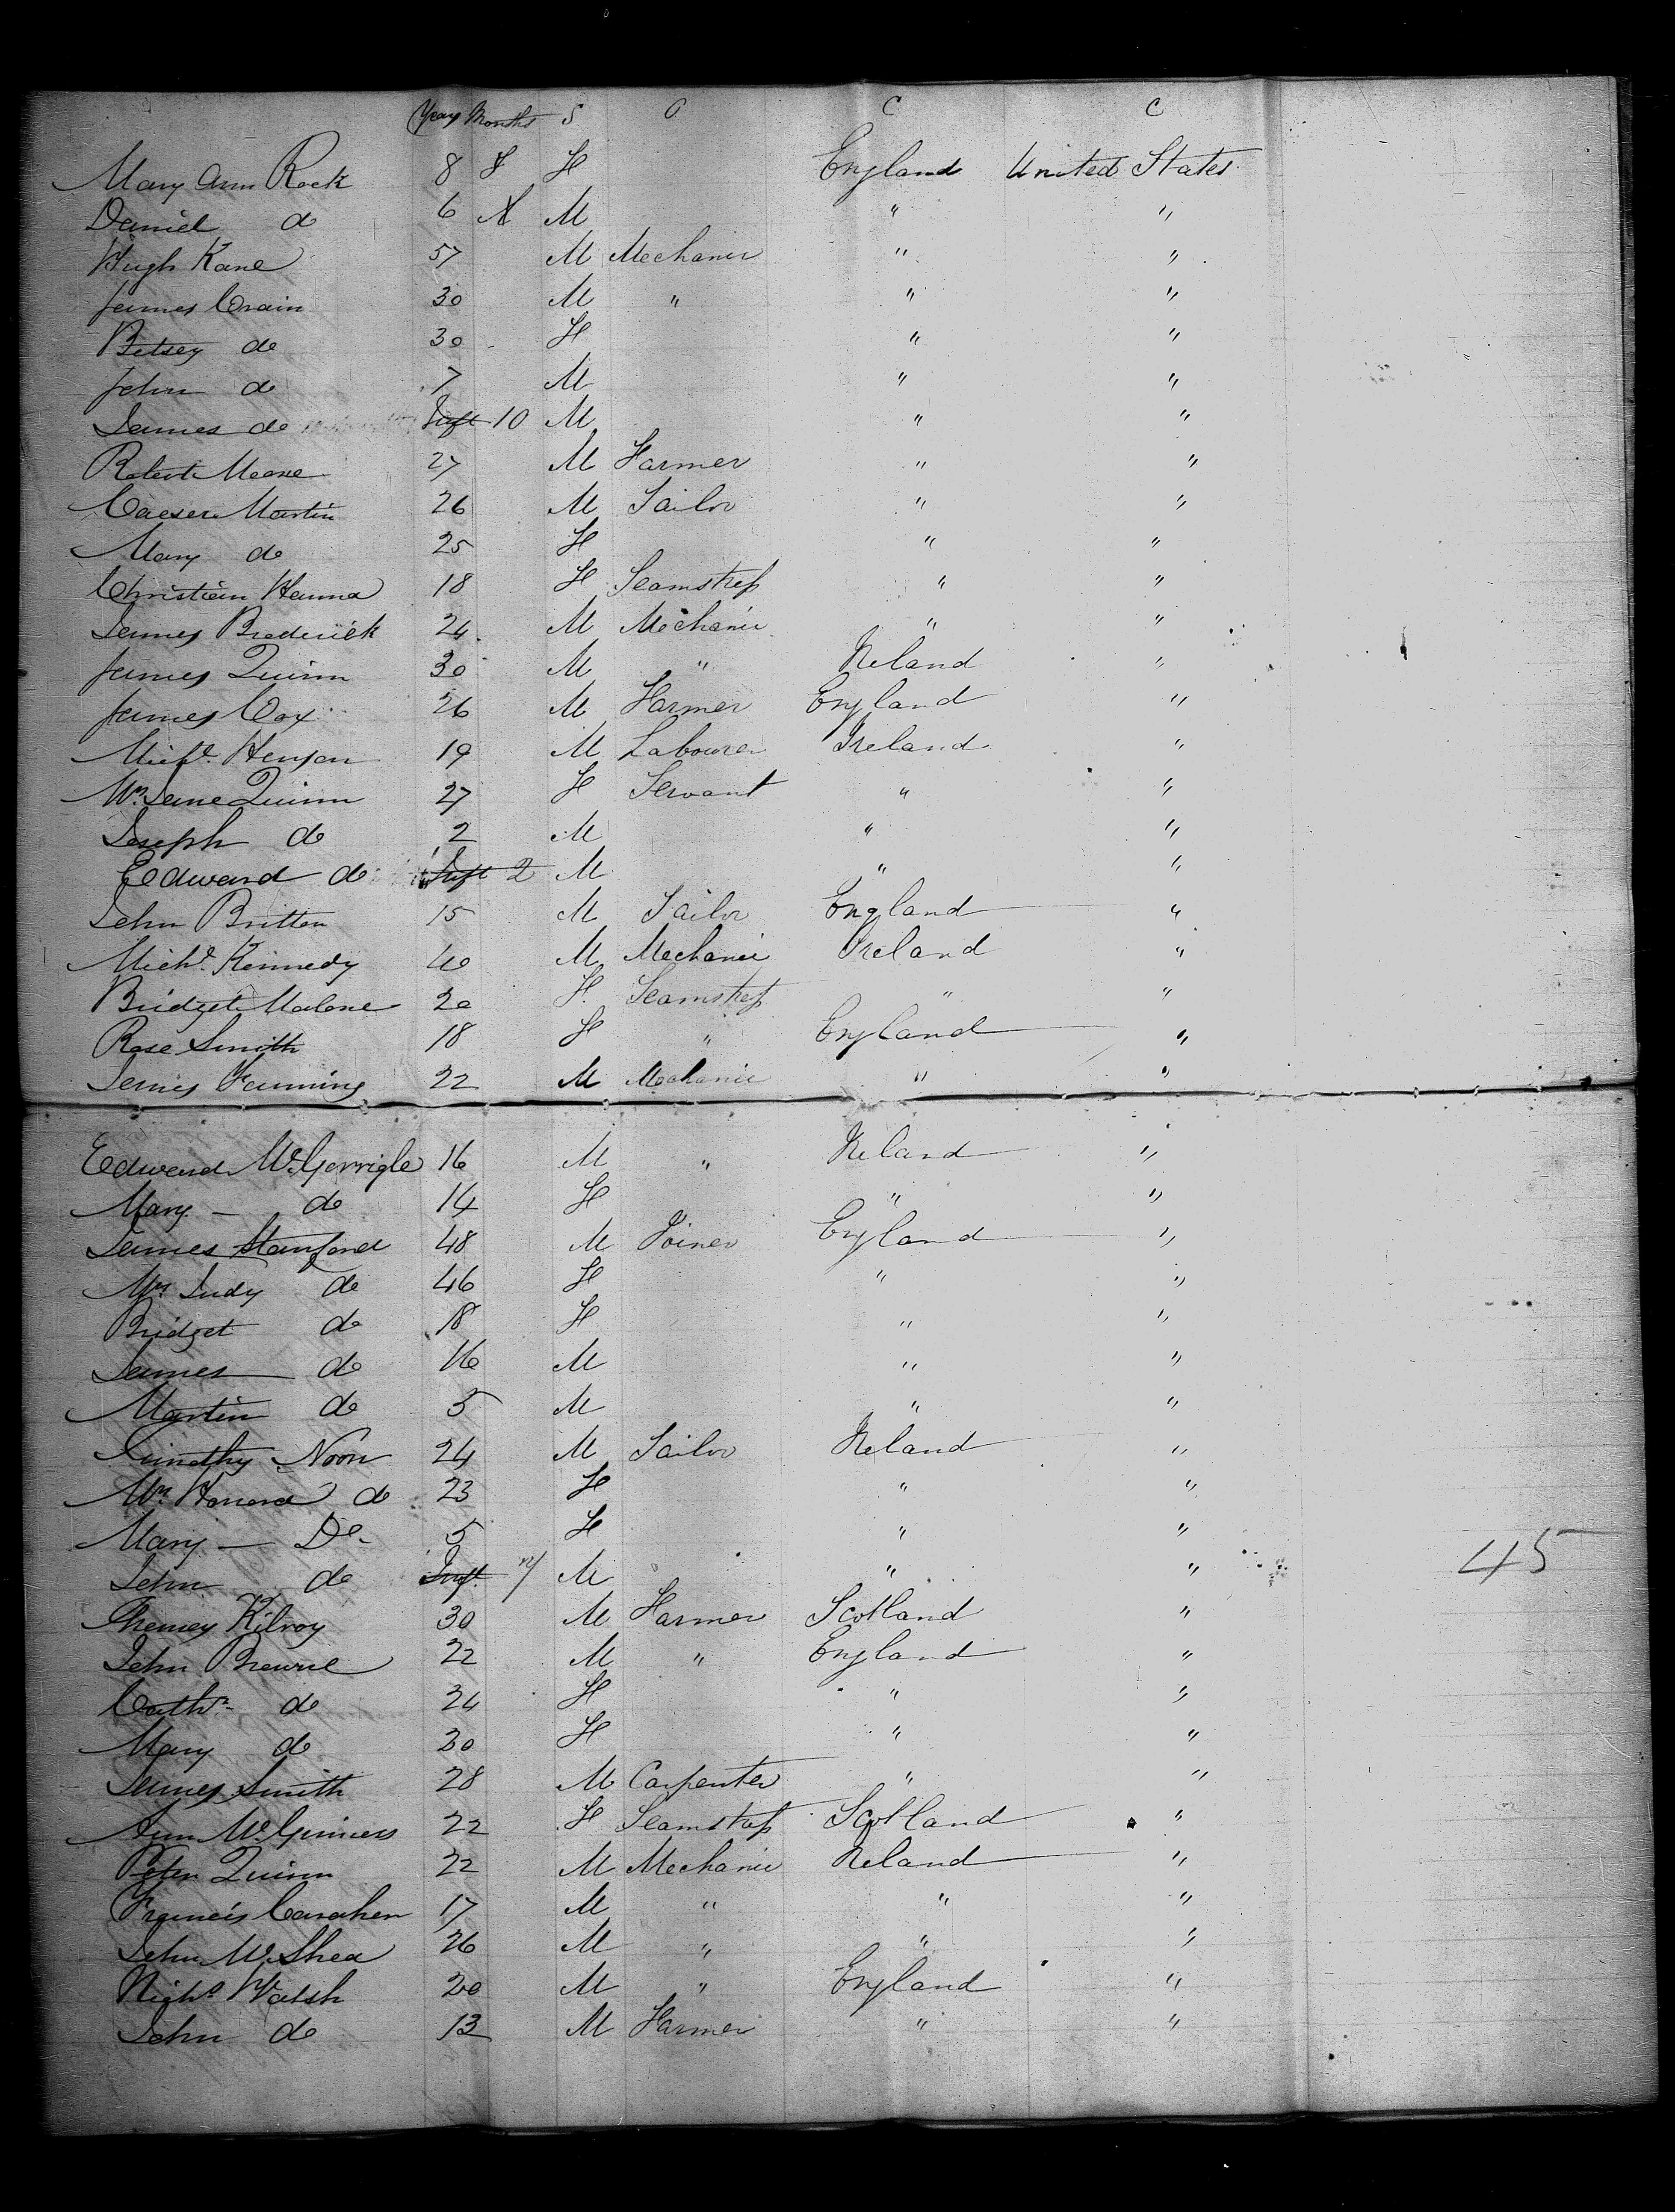 Years Months S O C C
Mary Ann Rock 8 F England United States
Daniel do 6 M " "
Hugh Kane 57 M Mechanic " "
James Crain 30 M " " "
Betsey do 30 F " "
John do 7 M " "
James do Inft 10 M " "
Robert Moore 27 M Farmer " "
Caeser Martin 26 M Tailor " "
Mary do 25 F " "
Christian Hanna 18 F Seamstress " "
James Broderick 24 M Mechanic " "
James Quinn 30 M " Ireland "
James Cox 26 M Farmer England "
Henson 19 M Labourer Ireland "
Mrs Jane Quinn 27 F Servant " "
Joseph do 2 M " "
Edward do Inft 2 M " "
John Britton 15 M Tailor England "
Michl Kennedy 40 M Mechanic Ireland "
Bridget Malone 20 F Seamstress " "
Rose Smith 18 F " England "
James Fanning 22 M Mechanic " "
Edward McGorrigle 16 M " Ireland "
Mary do 14 F " "
James Stanford 48 M Joiner England "
Mrs Judy do 46 F " "
Bridget do 18 F " "
James do 16 M " "
Martin do 5 M " "
Timothy Noon 24 M Tailor Ireland "
Mrs Honora do 23 F " "
Mary Do 5 F " "
John do Inft M " " 45
Kilroy 30 M Farmer Scotland "
John 22 M " England "
Cathn do 24 F " "
Mary do 30 F " "
James Smith 28 M Carpenter " "
Ann McGinness 22 F Seamstress Scotland "
Peter Quinn 22 M Mechanic Ireland "
Francis Carahen 17 M " " "
John McShea 26 M " " "
Nichs Walsh 20 M " England "
John do 13 M Farmer " "